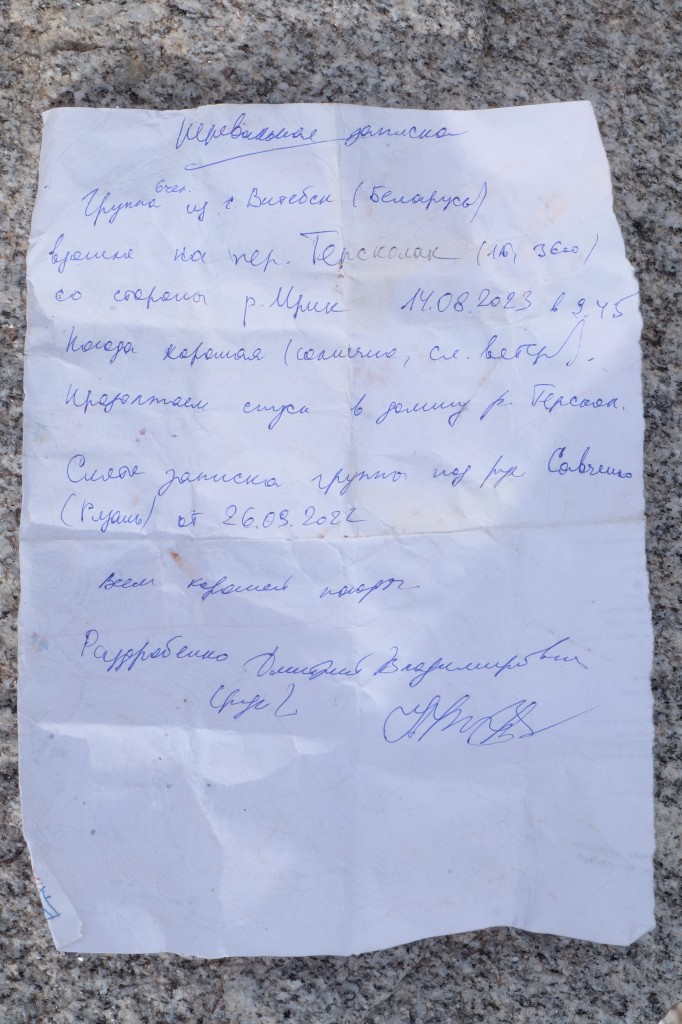 Перевальная записка
Группа 6 чел. из г. Витебск (Беларусь)
взошла на пер. Терсколак (1Б, 3600)
со стороны р. Ирик 14.08.2023 в 9.45
Погода хорошая (солнечно, сл. ветер).
Продолжаем спуск в долину р. Терскол.
Снята записка группы под рук Савченко
(Рязань) от 26.09.2022
Всем хорошей погоды
Раздробенко Дмитрий Владимирович
(рук)